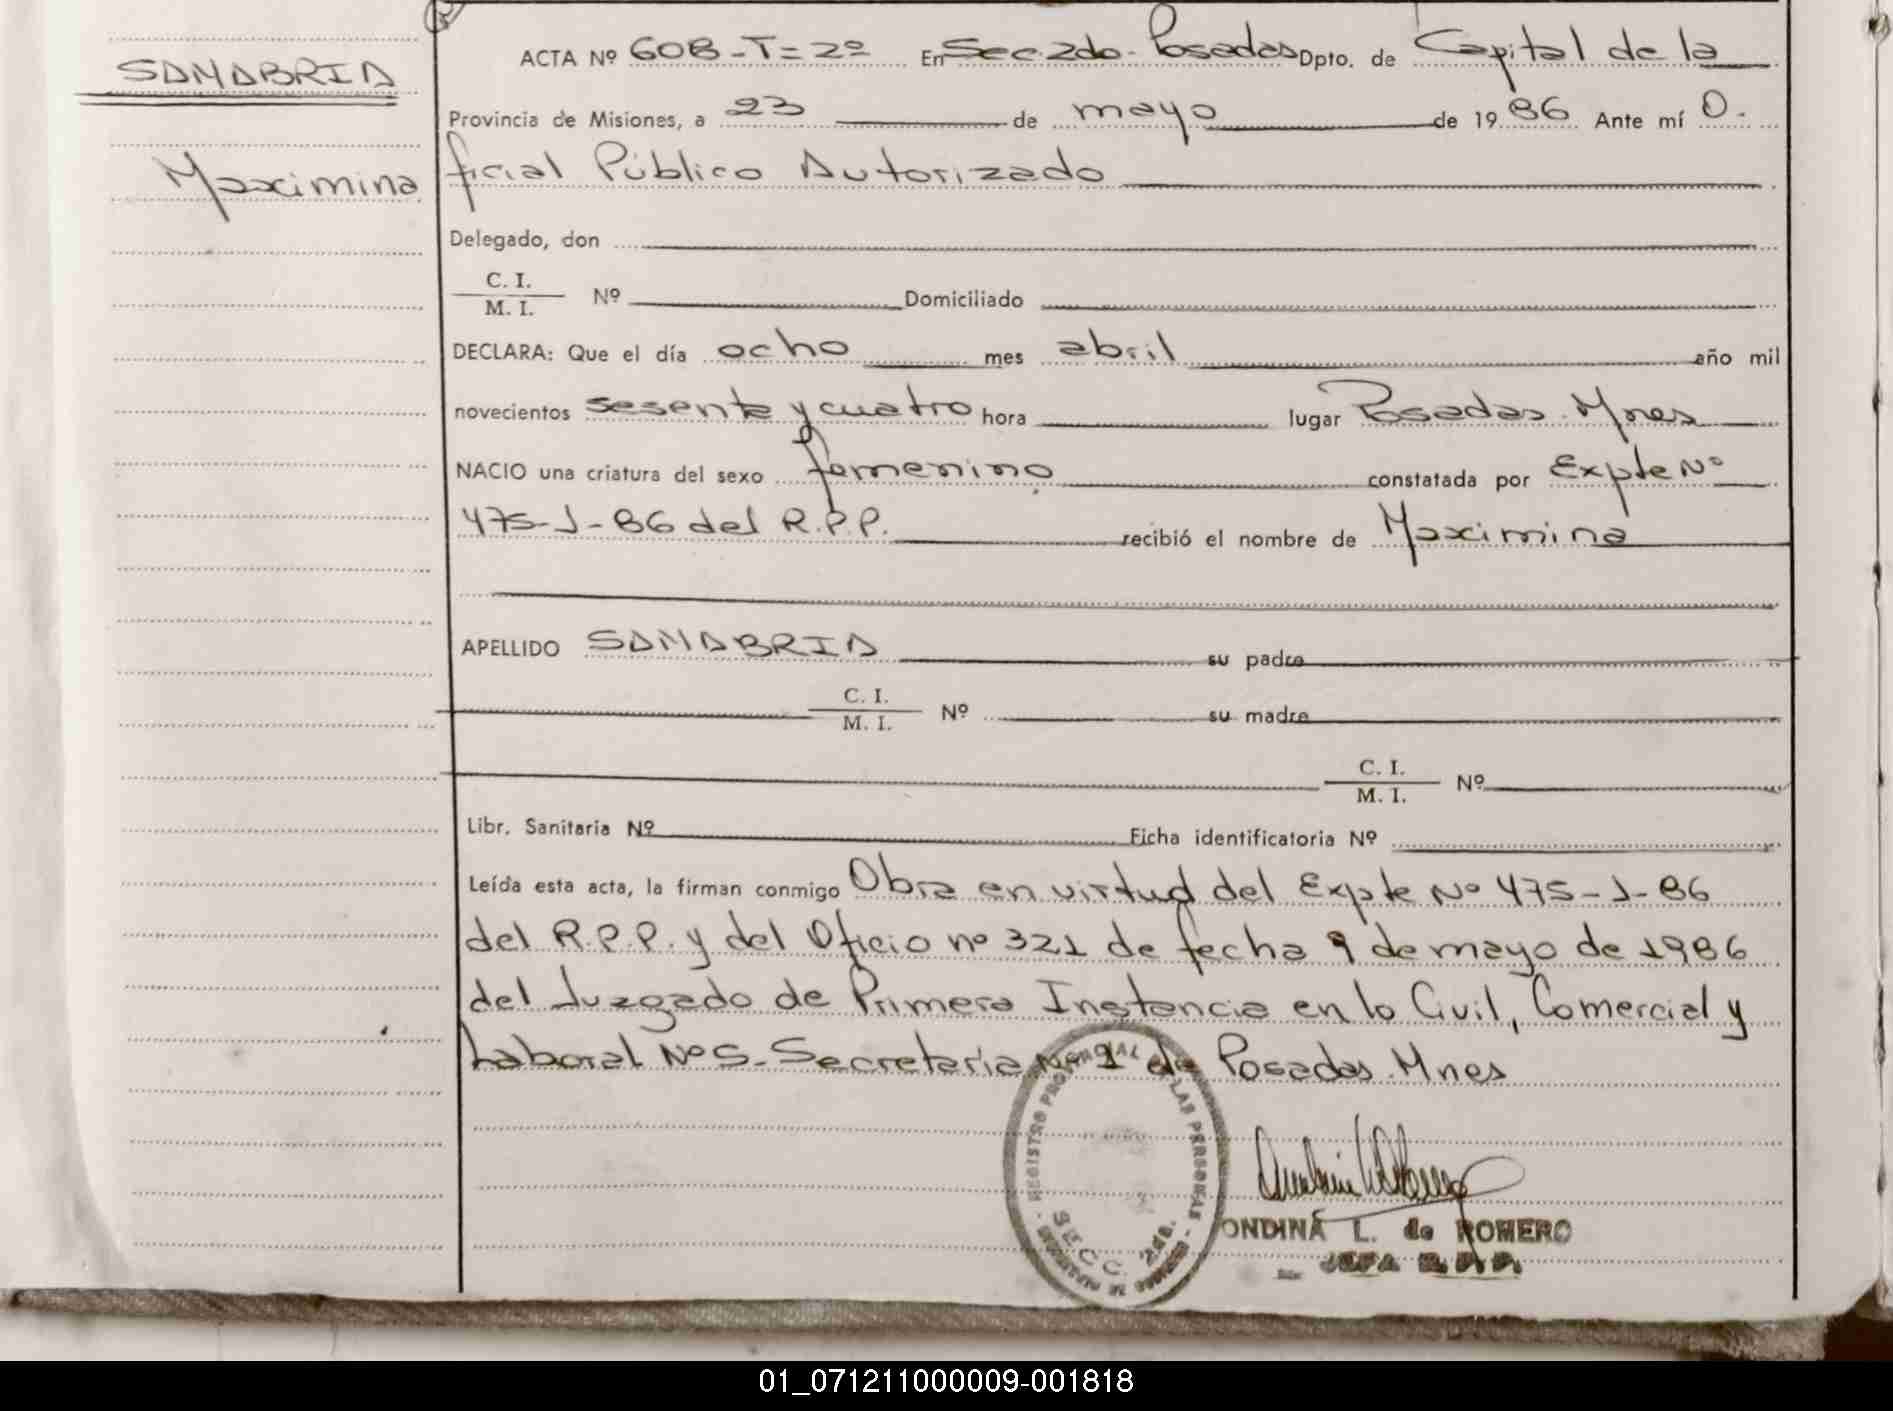 SANABRIA
Maximina
ACTA Nº 608-T=2º En Secc. 2da. Posadas Dpto. de Capital de la
Provincia de Misiones, a 23 de mayo de 1986 Ante mí O.
ficial Público Autorizado
Delegado, don
C. I.
M. I. Nº Domiciliado
DECLARA: Que el día ocho mes abril año mil
novecientos sesenta y cuatro hora lugar Posadas Mnes
NACIO una criatura del sexo femenino constatada por Expte Nº
475-J-86 del R.P.P. recibió el nombre de Maximina
APELLIDO SANABRIA su padre
C. I.
M. I. Nº su madre
C. I.
M. I. Nº
Libr. Sanitaria Nº Ficha identificatoria Nº
Leída esta acta, la firman conmigo Obra en virtud del Expte Nº 475-J-86
del R.P.P. y del Oficio nº 321 de fecha 9 de mayo de 1986
del Juzgado de Primera Instancia en lo Civil, Comercial y
Laboral Nº 5- Secretaria Nº 1 de Posadas Mnes
REGISTRO PROVINCIAL DE LAS PERSONAS
SECC. 2da.
ONDINA L. de ROMERO
JEFA R.P.P.
01_071211000009-001818